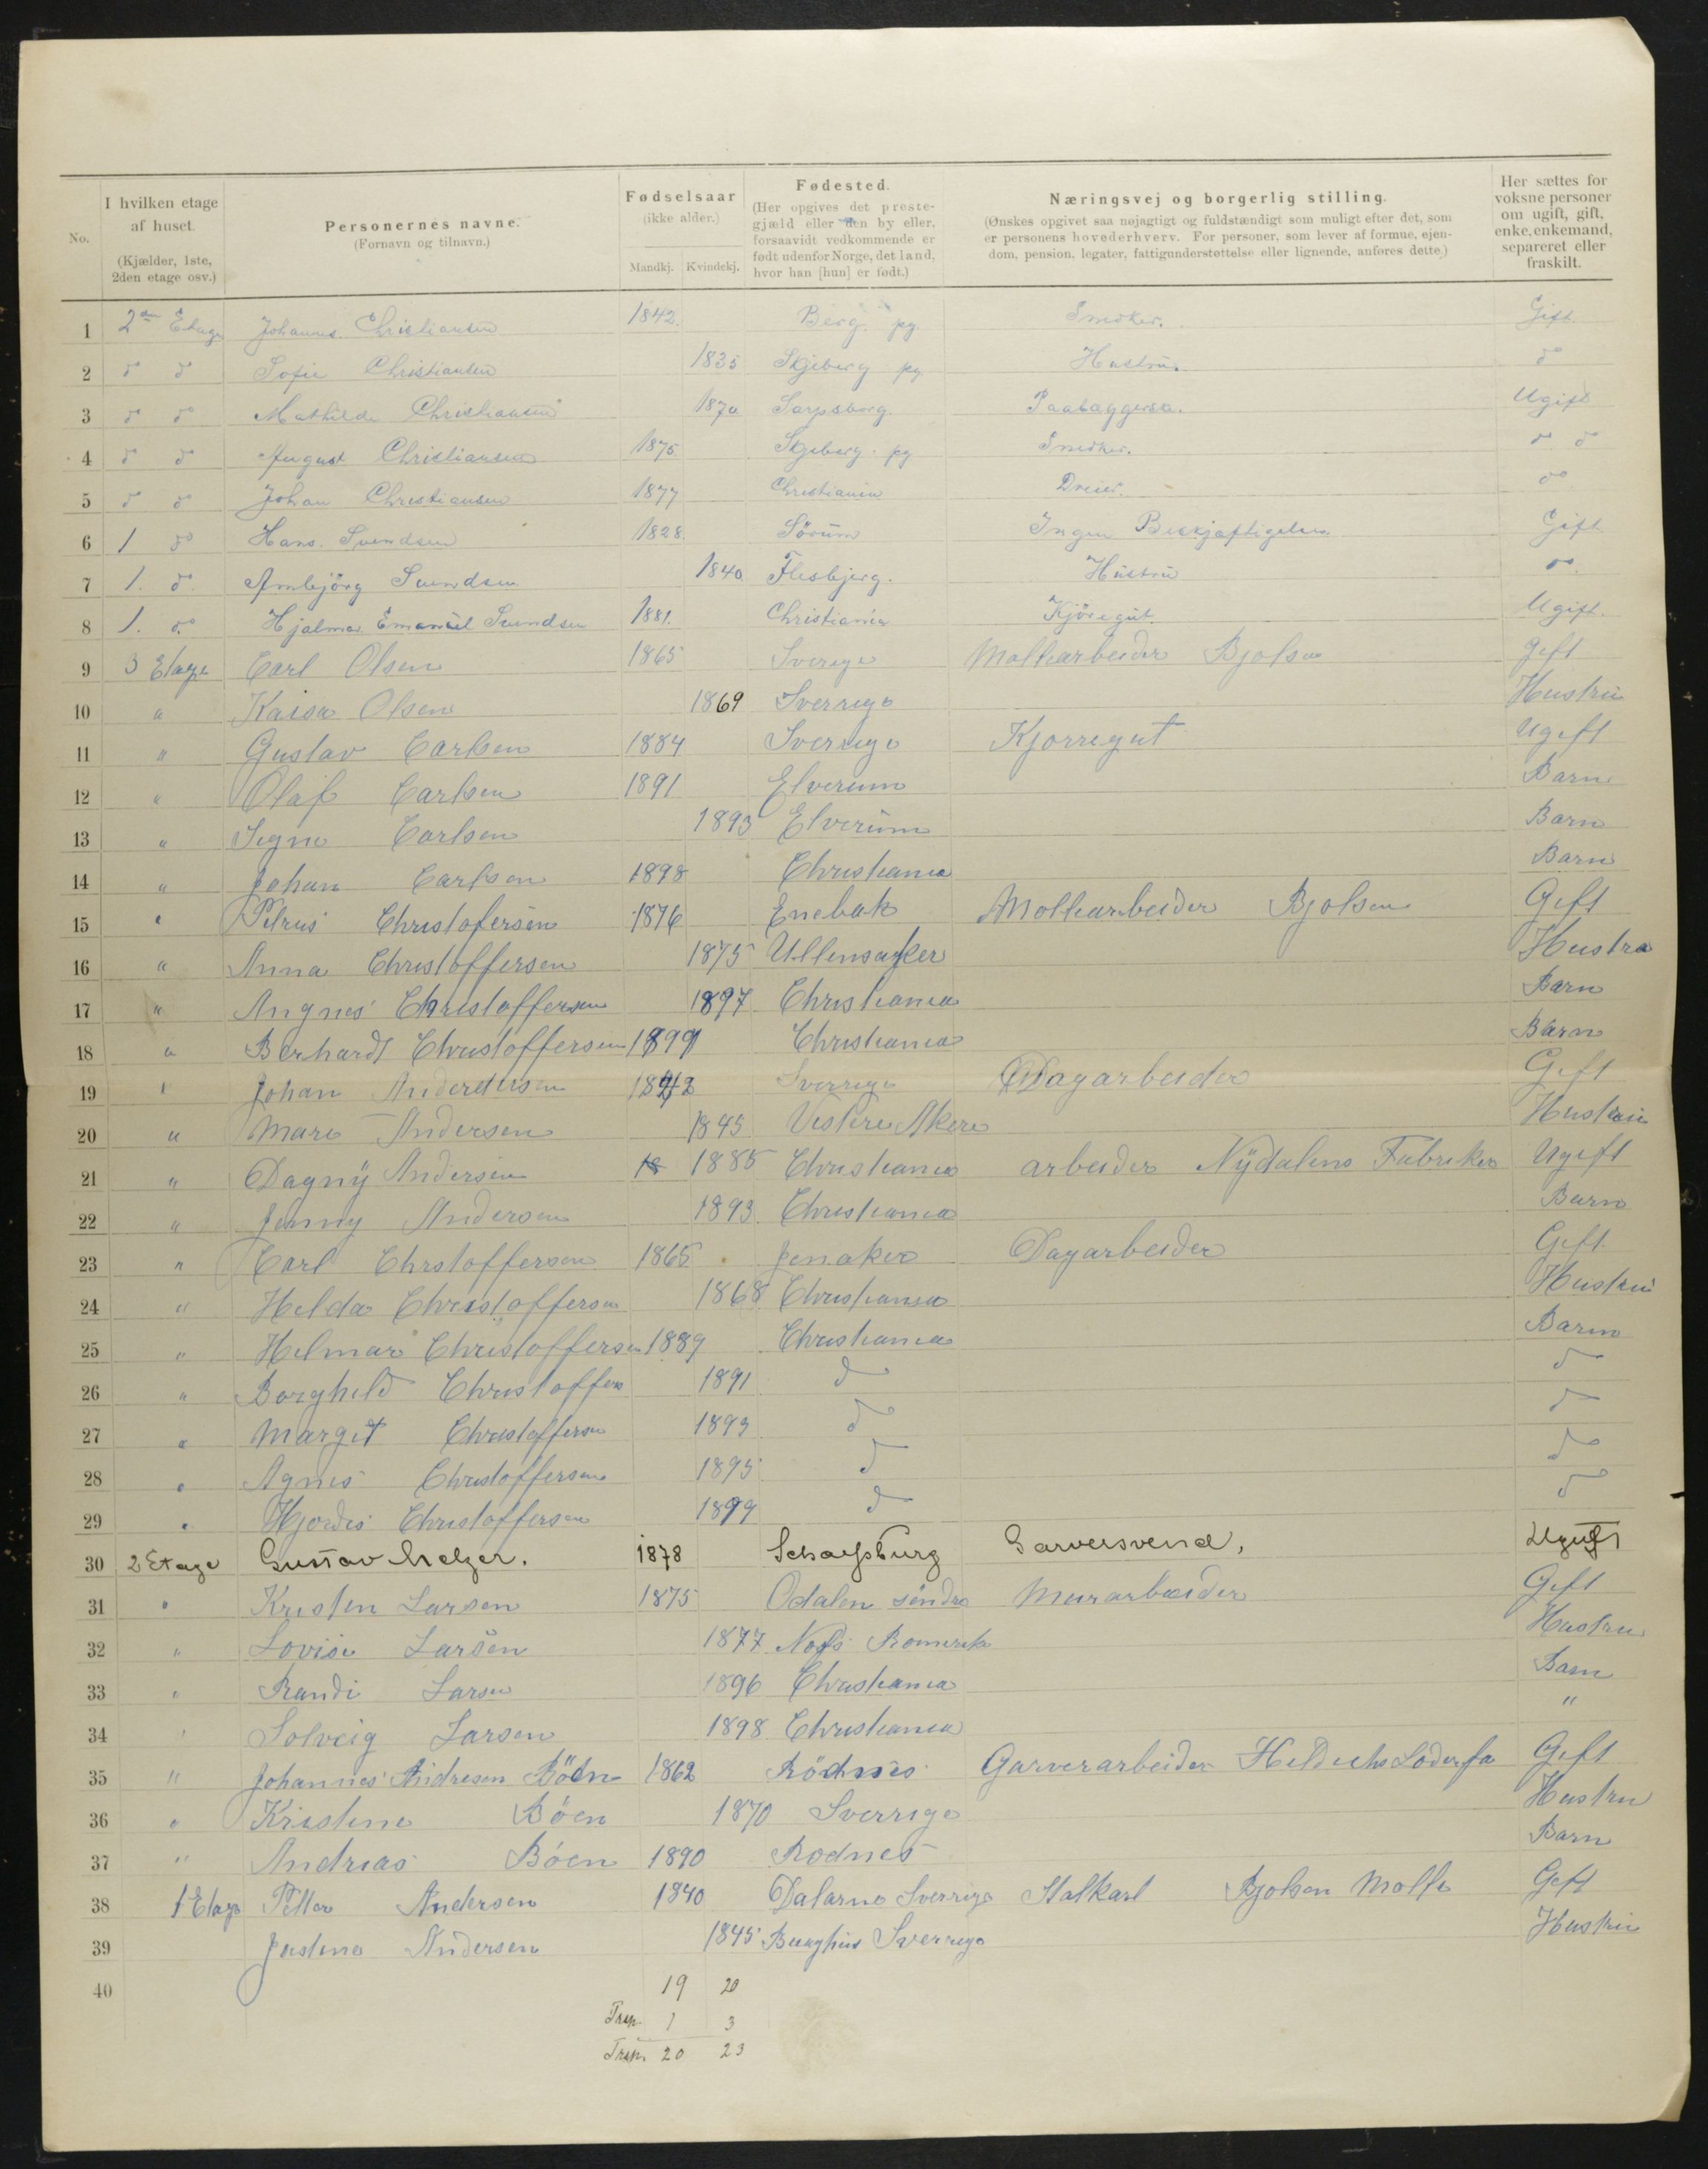 No.
I hvilken etage af huset. (Kjælder, 1ste, 2den etage osv.)
Personernes navne. (Fornavn og tilnavn.)
Fødselsaar (ikke alder.) Mandkj. Kvindekj.
Fødested. (Her opgives det prestegjæld eller den by eller, forsaavidt vedkommende er født udenfor Norge, det land, hvor han [hun] er født.)
Næringsvej og borgerlig stilling. (Ønskes opgivet saa nøjagtigt og fuldstændigt som muligt efter det, som er personens hovederhverv. For personer, som lever af formue, ejendom, pension, legater, fattigunderstøttelse eller lignende, anføres dette.)
Her sættes for voksne personer om ugift, gift, enke, enkemand, separeret eller fraskilt.
1 2den Etage Johannes Christiansen 1842. Berg. pg. Snedker. Gift
2 do do Sofie Christiansen 1835 Skjeberg pg Hustru. do
3 do do Mathilde Christiansen 1870 Sarpsborg. Paalæggerske. Ugift
4 do do August Christiansen 1875 Skjeberg. pg Snedker. do do
5 do do Johan Christiansen 1877 Christiania Dreier. do
6 1 do Hans. Svendsen 1828. Sörum Ingen Beskjæftigelse. Gift
7 1. do Ambjörg Svendsen 1840 Flesbjerg. Hustru do
8 1. do Hjalmar Emanuel Svendsen 1881. Christiania Kjöregut. Ugift.
9 3 Etage Carl Olsen 1865 Sverige Mollearbeider Bjolsen gift
10 " Kaisa Olsen 1869 Sverrige Hustru
11 " Gustav Carlsen 1884 Sverrige Kjorregut Ugift
12 " Olaf Carlsen 1891 Elverum Barn
13 " Signe Carlsen 1893 Elverum Barn
14 " Johan Carlsen 1898 Christiania Barn
15 " Petrus Christofersen 1876 Enebak Mollearbeider Bjolsen Gift
16 " Anna Christoffersen 1875 Ullensaker Hustru
17 " Angnes Christoffersen 1897 Christiania Barn
18 " Berhardt Christoffersen 1899 Christiania Barn
19 " Johan Andersen 1842 Sverrige Dagarbeider Gift
20 " Mare Andersen 1845 Vestre Akere Hustru
21 " Dagny Andersen 18 1885 Christiania arbeider Nydalens Fabriker Ugift
22 " Jenny Andersen 1893. Christiania Barn
23 " Carl Chrstoffersen 1865 Jenaker Dagarbeider Gift
24 " Helda Christoffersen 1868 Christiania Hustru
25 " Helmar Christoffersen 1889 Christiania Barn
26 " Borghild Christoffers 1891 do do
27 " Margit Christoffersen 1893 do do
28 " Agnes Christoffersen 1895 do do
29 " Hjordis Christoffersen 1899 do do
30 2 Etage Gustav Melzer. 1878 Schassburg Garversvend, Ugift
31 " Kristen Larsen 1875 Odalen söndre Murarbeider Gift
32 " Lovise Larsen 1877 Næs Romerike Hustru
33 " Randi Larsen 1896 Christiania Barn
34 " Solveig Larsen 1898 Christiania "
35 " Johannes Andresen Böen 1862 Rödnes Garverarbeider Gift
36 " Kristine Böen 1870 Sverrige Hustru
37 " Andrias Böen 1890 Rodnes Barn
38 1 Etage Petter Andersen 1840 Dalarne Sverrige Stalkarl Bjolsen Molle Gift
39 Justine Andersen 1845 Sverrige Hustru
40
19 20
Trsp. 1 3
Trsp. 20 23